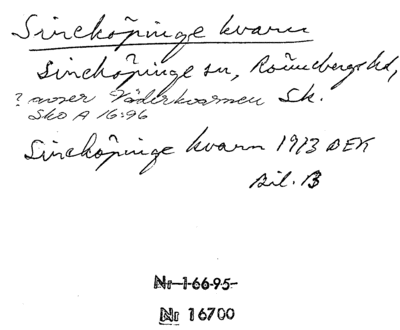 Sireköpinge kvarn
Sireköpinge sn, Rönnebergs hd,
? avser Väderkvarnen Sk.
SkO A 16:96
Sireköpinge kvarn 1913 BEK
Bil. B
Nr 1-66-95-
Nr 16700